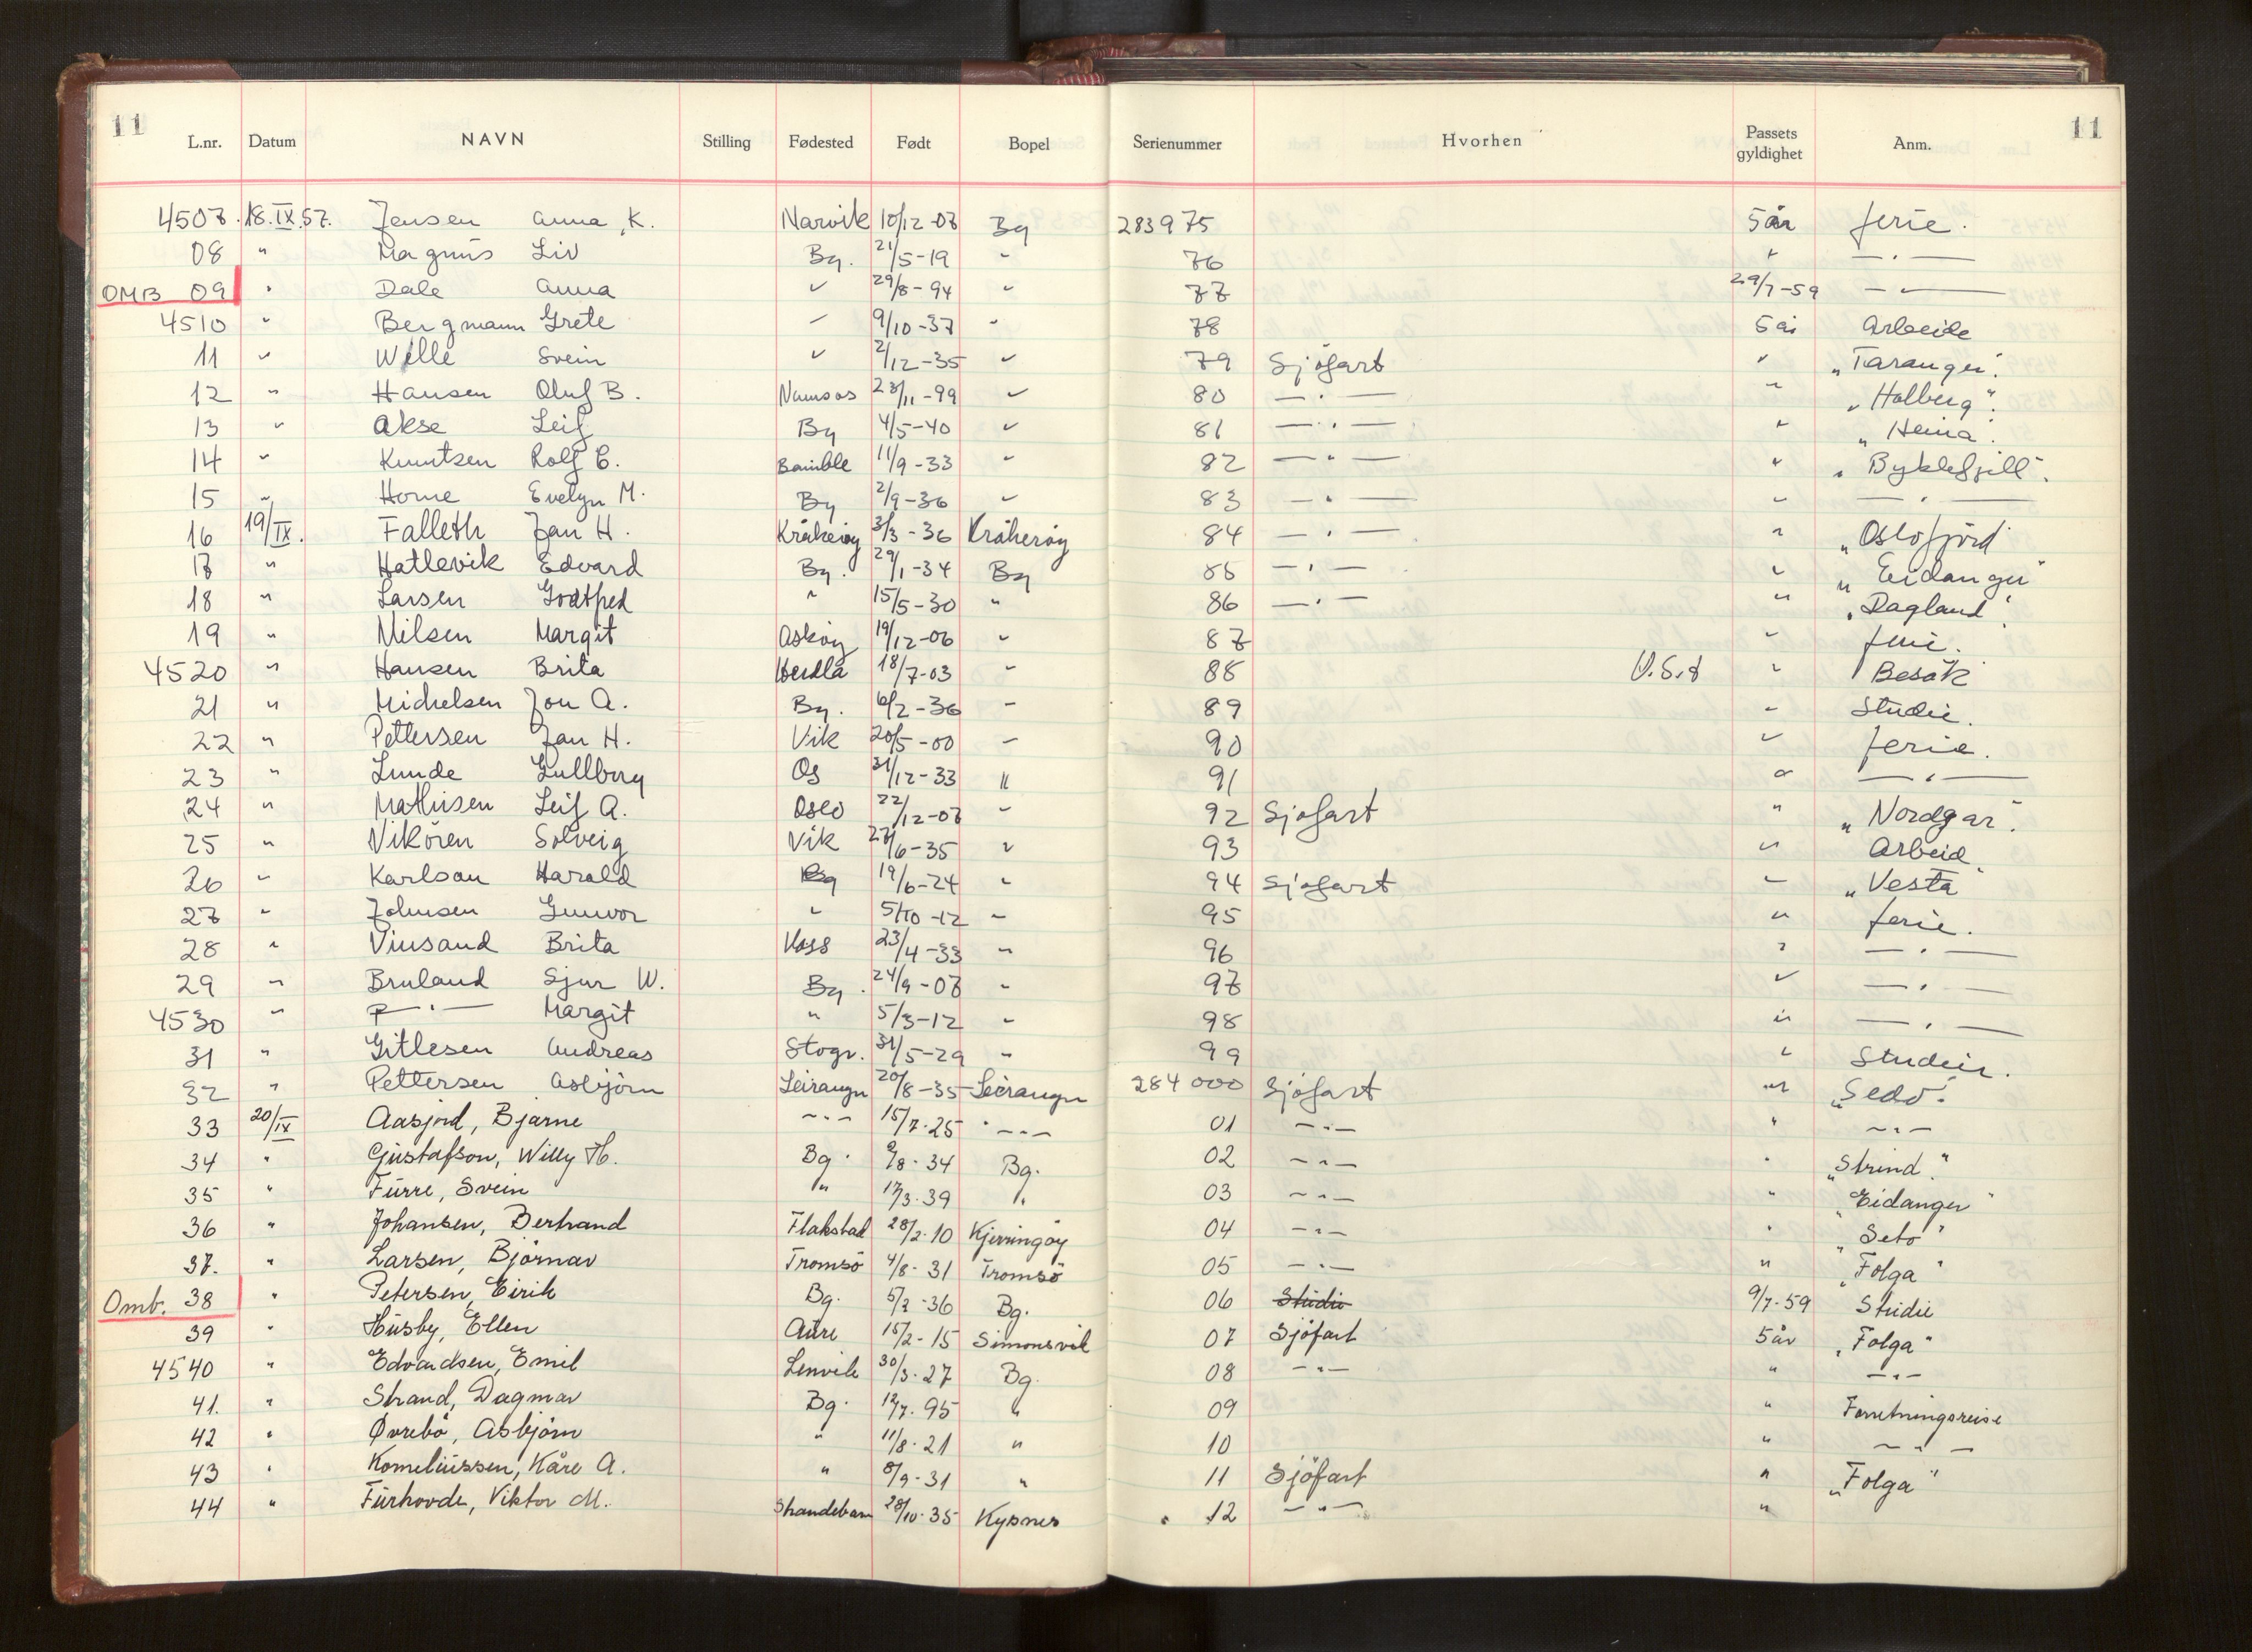 11 11
L.nr. Datum NAVN Stilling Fødested Født Bopel Serienummer Hvorhen Passets gyldighet Anm.
4507. 18.IX.57. Jensen Anna K. Narvik 10/12-07 Bg 283975 5 år ferie.
08 " Magnus Liv Bg. 21/5-19 " 76 " — " —
OMB 09 " Dale Anna " 29/8-94 " 77 29/7-59 — " —
4510 " Bergmann Grete " 9/10-37 " 78 5 år Arbeide
11 " Wille Svein " 2/12-35 " 79 Sjöfart " "Taranger".
12 " Hansen Oluf B. Namsos 23/11-99 " 80 — " — " "Holberg".
13 " Akse Leif Bg 4/5-40 " 81 — " — " "Heina".
14 " Knutsen Rolf C. Bamble 11/9-33 " 82 — " — " "Byklefjell".
15 " Horne Evelyn M. Bg 2/9-36 " 83 — " — " — " —
16 19/IX. Falleth Jan H. Kråkeröy 3/3-36 Kråkeröy 84 — " — " "Oslofjord"
17 " Hatlevik Edvard Bg. 29/1-34 Bg 85 — " — " "Eidanger"
18 " Larsen Godtfred " 15/5-30 " 86 — " — " "Dagland".
19 " Nilsen Margit Asköy 19/12-06 " 87 " ferie.
4520 " Hansen Brita Herdla 18/7-03 " 88 U.S.A " Besök
21 " Michelsen Jon A. Bg. 6/2-36 " 89 " Studie.
22 " Pettersen Jan H. Vik 20/5-00 " 90 " ferie.
23 " Lunde Gullborg Os 31/12-33 " 91 " — " —
24 " Mathisen Leif A. Oslo 22/12-07 " 92 Sjöfart " "Nordgar".
25 " Vikören Solveig Vik 27/6-35 " 93 " Arbeid.
26 " Karlsen Harald Bg 19/6-24 " 94 Sjöfart " "Vesta"
27 " Johnsen Gunvor " 5/10-12 " 95 " ferie.
28 " Vinsand Brita Voss 23/4-33 " 96 " — " —
29 " Bruland Sjur W. Bg. 24/9-07 " 97 " — " —
4530 " — " — Margit " 5/3-12 " 98 " — " —
31 " Gitlesen Andreas 31/5-29 " 99 " Studier.
32 " Pettersen Asbjörn Leirangr 20/8-35 Leirangr 284000 Sjöfart "
33 20/IX Aasjord, Bjarne — " — 15/7-25 — " — 01 — " — " — " —
34 " Gustafson, Willy H. Bg. 9/8-34 Bg. 02 — " — " "Strind."
35 " Furre, Svein " 17/3-39 " 03 — " — " "Eidanger"
36 " Johansen, Bertrand Flakstad 28/2-10 Kjerringöy 04 — " — " "Seto"
37. " Larsen, Björnar Tromsö 4/8-31 Tromsö 05 — " — " "Folga"
Omb. 38 " Petersen, Eirik Bg. 5/2-36 Bg. 06 Studie 9/7-59 Studie
39 " Husby, Ellen Aure 15/2-15 Simonsvik 07 Sjöfart 5 år "Folga"
4540 " Edvardsen, Emil Lenvik 30/3-27 Bg. 08 — " — " — " —
41. " Strand, Dagmar Bg. 12/7-95 " 09 " Forretningsreise
42 " Øvrebö, Asbjörn " 11/8-21 " 10 " — " —
43 " Korneliussen, Kåre A. " 8/9-31 " 11 Sjöfart " "Folga"
44 " Furhovde, Viktor M. Strandebarm 28/10-35 Kysnes 12 — " — "